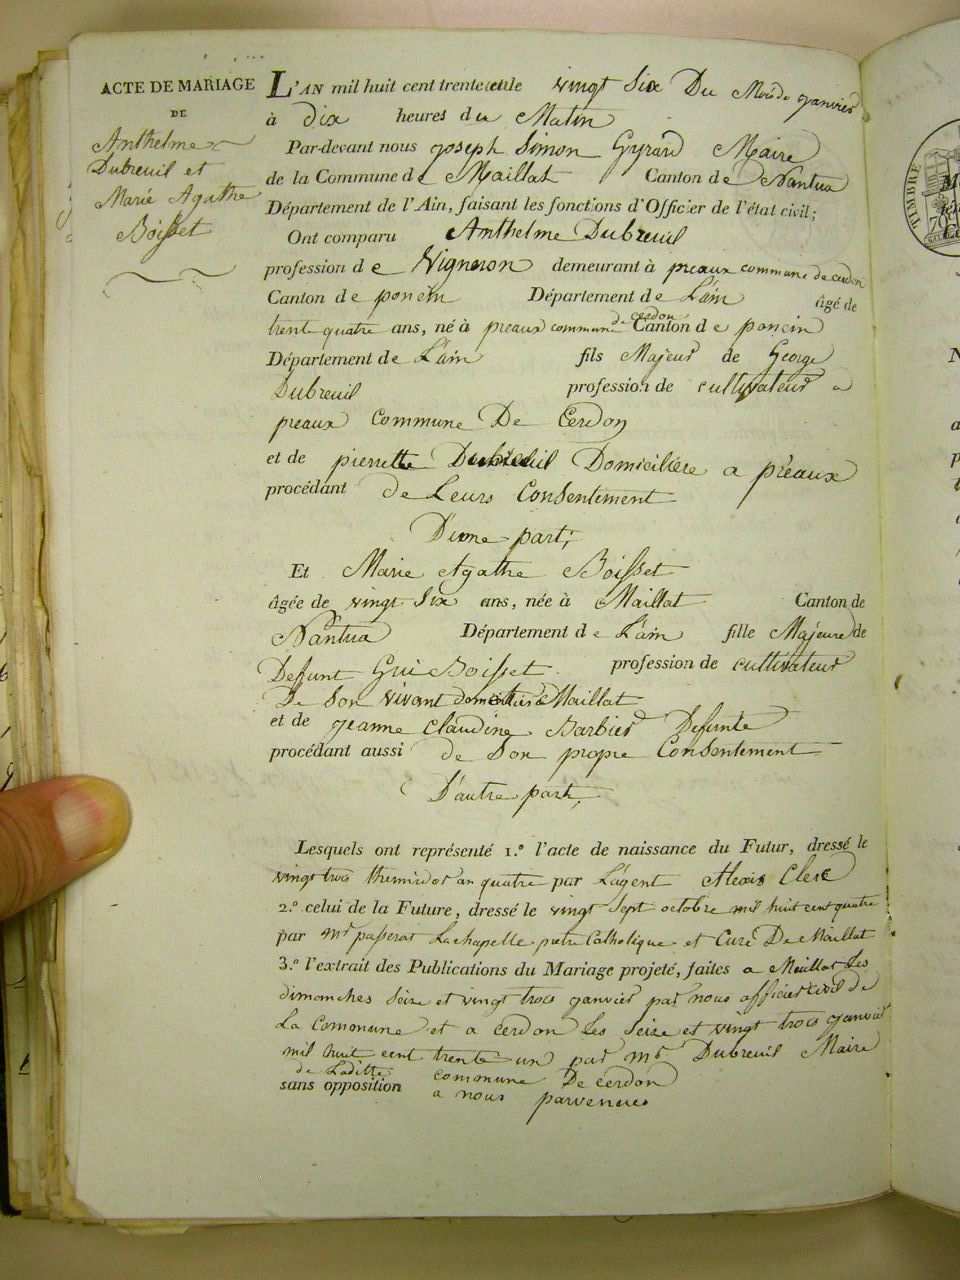 ACTE DE MARIAGE
DE
Anthelme
Dubreuil et
Marie Agathe
Boisset
L'AN mil huit cent trente et le vingt Six Du Mois de janvier
à dix heures du Matin
Par-devant nous joseph Simon Gyrard Maire
de la Commune de Maillat Canton de Nantua
Département de l'Ain, faisant les fonctions d'Officier de l'état civil;
Ont comparu Anthelme Dubreuil
profession de Vigneron demeurant à preaux commune de cerdon
Canton de poncin Département de L'ain âgé de
trente quatre ans, né à preaux commune de cerdon Canton de poncin
Département de L'ain fils Majeur de George
Dubreuil profession de cultivateur a
preaux commune De Cerdon
et de pierrette Dubreuil Domiciliére a préaux
procédant de Leurs Consentement
D'une part;
Et Marie Agathe Boisset
âgée de vingt Six ans, née à Maillat Canton de
Nantua Département de L'ain fille Majeure de
Defunt Gui Boisset profession de cultivateur
De Son vivant a Maillat
et de jeanne Claudine Barbier Defunte
procédant aussi de Son propre Consentement
D'autre part;
Lesquels ont représenté 1.º l'acte de naissance du Futur, dressé le
vingt trois thermidor an quatre par L'agent Alexis Clerc
2.º celui de la Future, dressé le vingt Sept octobre mil huit cent quatre
par Mr passerat Lachapelle pretre Catholique et Curé De Maillat
3.º l'extrait des Publications du Mariage projeté, faites a Maillat Les
dimanches Seize et vingt trois janvier par nous officier civil de
La Commune et a cerdon Les Seize et vingt trois janvier
mil huit cent trente un par Mr Dubreuil Maire
de Laditte commune De cerdon
sans opposition a nous parvenues
TIMBRE